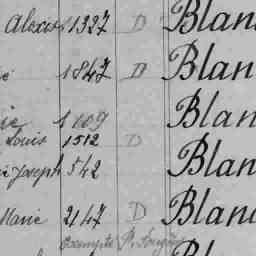 Alexis 1327 D Blan
ie 1847 D Blan
ie 1109 Blan
Louis 1512 D
Joseph 542 Blan
Marie 2147 D Blan
Exempte P.